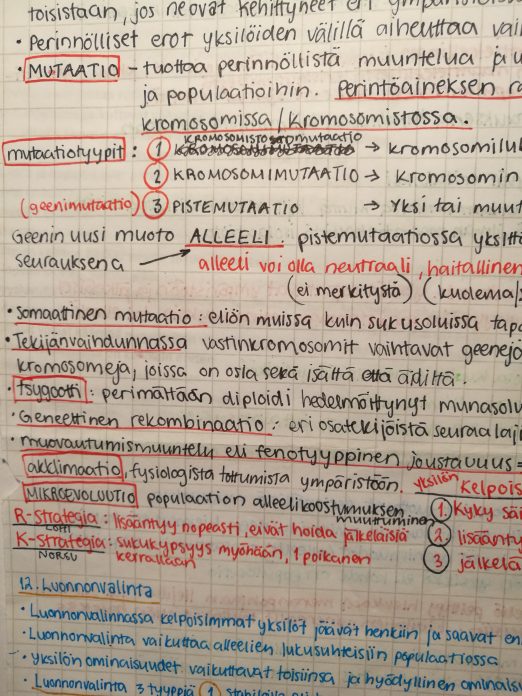 toisistaan, jos ne ovat kehittyneet eri ympäristöissä
• Perinnölliset erot yksilöiden välillä aiheuttaa vai
• MUTAATIO - tuottaa perinnöllistä muuntelua ja u
ja populaatioihin. Perintöaineksen ra
kromosomissa/kromosomistossa.
mutaatiotyypit: 1 KROMOSOMISTOmutaatio → kromosomiluk
2 KROMOSOMIMUTAATIO → kromosomin
(geenimutaatio) 3 PISTEMUTAATIO → Yksi tai muut
Geenin uusi muoto ALLEELI. pistemutaatiossa yksittä
seurauksena alleeli voi olla neutraali, haitallinen
(ei merkitystä) (kuolema/s
• Somaattinen mutaatio: eliön muissa kuin sukusoluissa tapa
• Tekijänvaihdunnassa vastinkromosomit vaihtavat geenejä
kromosomeja, joissa on osia sekä isältä että äidiltä.
• Tsygootti: perimältään diploidi hedelmöittynyt munasolu
• Geneettinen rekombinaatio: eri osatekijöistä seuraa laj
• muovautumismuuntelu eli fenotyyppinen joustavuus =
akklimaatio, fysiologista tottumista ympäristöön. yksilön kelpois
MIKROEVOLUUTIO populaation alleelikoostumuksen muuttuminen 1. Kyky säi
R-strategia: lisääntyy nopeasti, eivät hoida jälkeläisiä
K-strategia: sukukypsyys myöhään, 1 poikanen 2 lisäänty
NORSU kerrallaan 3 jälkelä
12. Luonnonvalinta
• Luonnonvalinnassa kelpoisimmat yksilöt jäävät henkiin ja saavat en
• Luonnonvalinta vaikuttaa alleelien lukusuhteisiin populaatiossa.
• Yksilön ominaisuudet vaikuttavat toisiinsa ja hyödyllinen ominaisu
• Luonnonvalinta 3 tyyppiä 1